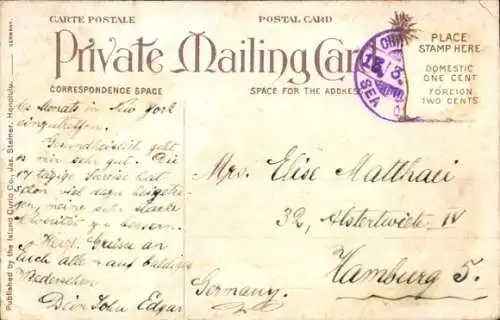 CARTE POSTALE
POSTAL CARD
Private Mailing Card
CORRESPONDENCE SPACE
SPACE FOR THE ADDRESS
PLACE
STAMP HERE
DOMESTIC
ONE CENT
FOREIGN
TWO CENTS
SEA
Monats in New York
einzutreffen.
Gesundheitlich geht
es mir sehr gut. Die
17 tägige Seereise hat
schon viel dazu beigetra-
gen, meine sehr starke
zu bessern.
Herzl. Grüsse an
Euch alle auf baldiges
Wiedersehen
Dein Sohn Edgar
Mrs. Elise Matthaei
32, Alstertwiete IV
Hamburg 5.
Germany.
Published by the Island Curio Co., Jas. Steiner, Honolulu.
GERMANY.